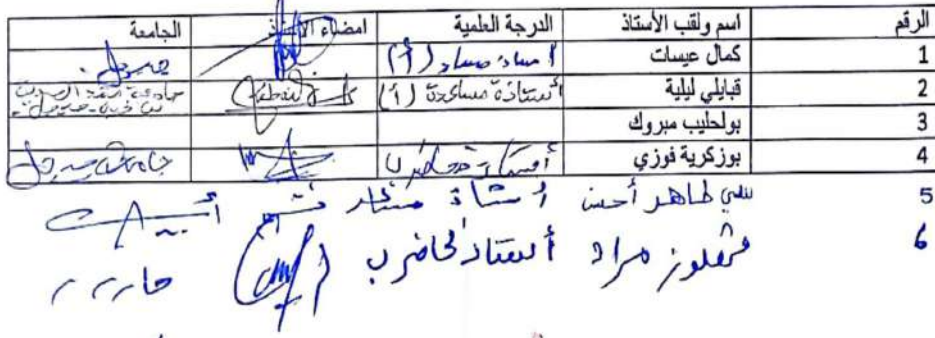 الرقم اسم ولقب الأستاذ الدرجة العلمية امضاء الأستاذ الجامعة
1 كمال عيسات أستاذ مساعد (أ) جيجل
2 قبايلي ليلية أستاذة مساعدة (أ) جامعة محمد الصديق بن يحيى - جيجل -
3 بولحليب مبروك
4 بوزكرية فوزي أستاذ محاضر ب جامعة جيجل
5 طاهر أحسن أستاذ
6 مراد أستاذ محاضر ب